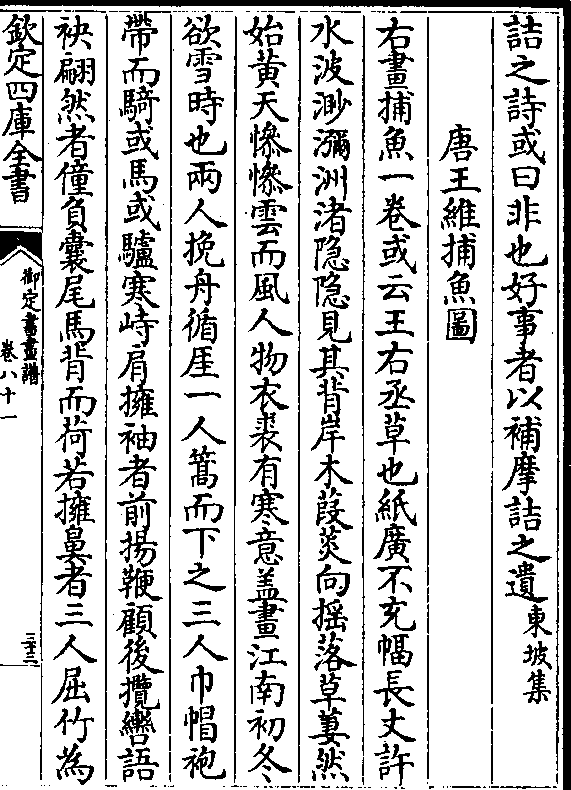 詰之詩或曰非也好事者以補摩詰之遺東坡集
唐王維捕魚圖
右畫捕魚一卷或云王右丞草也紙廣不充幅長丈許
水波渺瀰洲渚隐隐見其背岸木葭菼向摇落草萋然
始黄天慘慘雲而風人物衣裘有寒意盖畫江南初冬
欲雪時也兩人挽舟循厓一人篙而下之三人巾帽袍
帶而騎或馬或驢寒峙肩擁袖者前揚鞭顧後攬轡語
袂翩然者僮負囊尾馬背而荷若擁鼻者三人屈竹為
欽定四庫全書
御定書畫譜
卷八十一
三十三